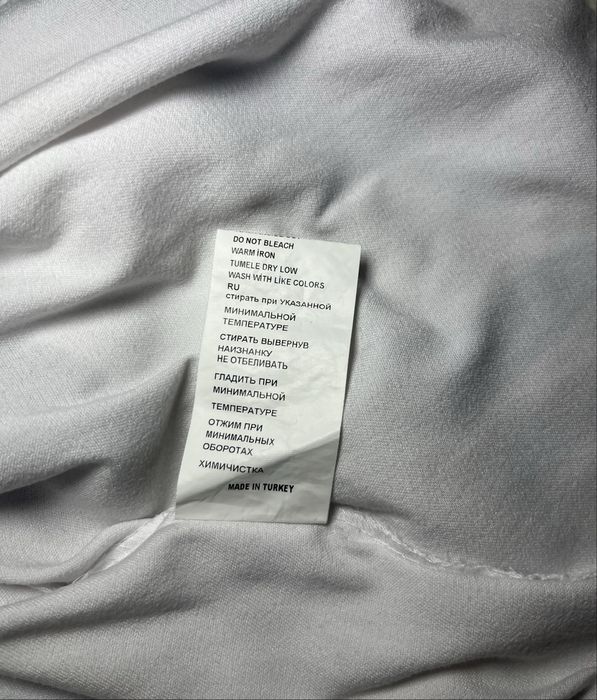 DO NOT BLEACH
WARM İRON
TUMELE DRY LOW
WASH WİTH LİKE COLORS
RU
стирать при УКАЗАННОЙ
МИНИМАЛЬНОЙ
ТЕМПЕРАТУРЕ
СТИРАТЬ ВЫВЕРНУВ
НАИЗНАНКУ
НЕ ОТБЕЛИВАТЬ
ГЛАДИТЬ ПРИ
МИНИМАЛЬНОЙ
ТЕМПЕРАТУРЕ
ОТЖИМ ПРИ
МИНИМАЛЬНЫХ
ОБОРОТАХ
ХИМИЧИСТКА
MADE IN TURKEY